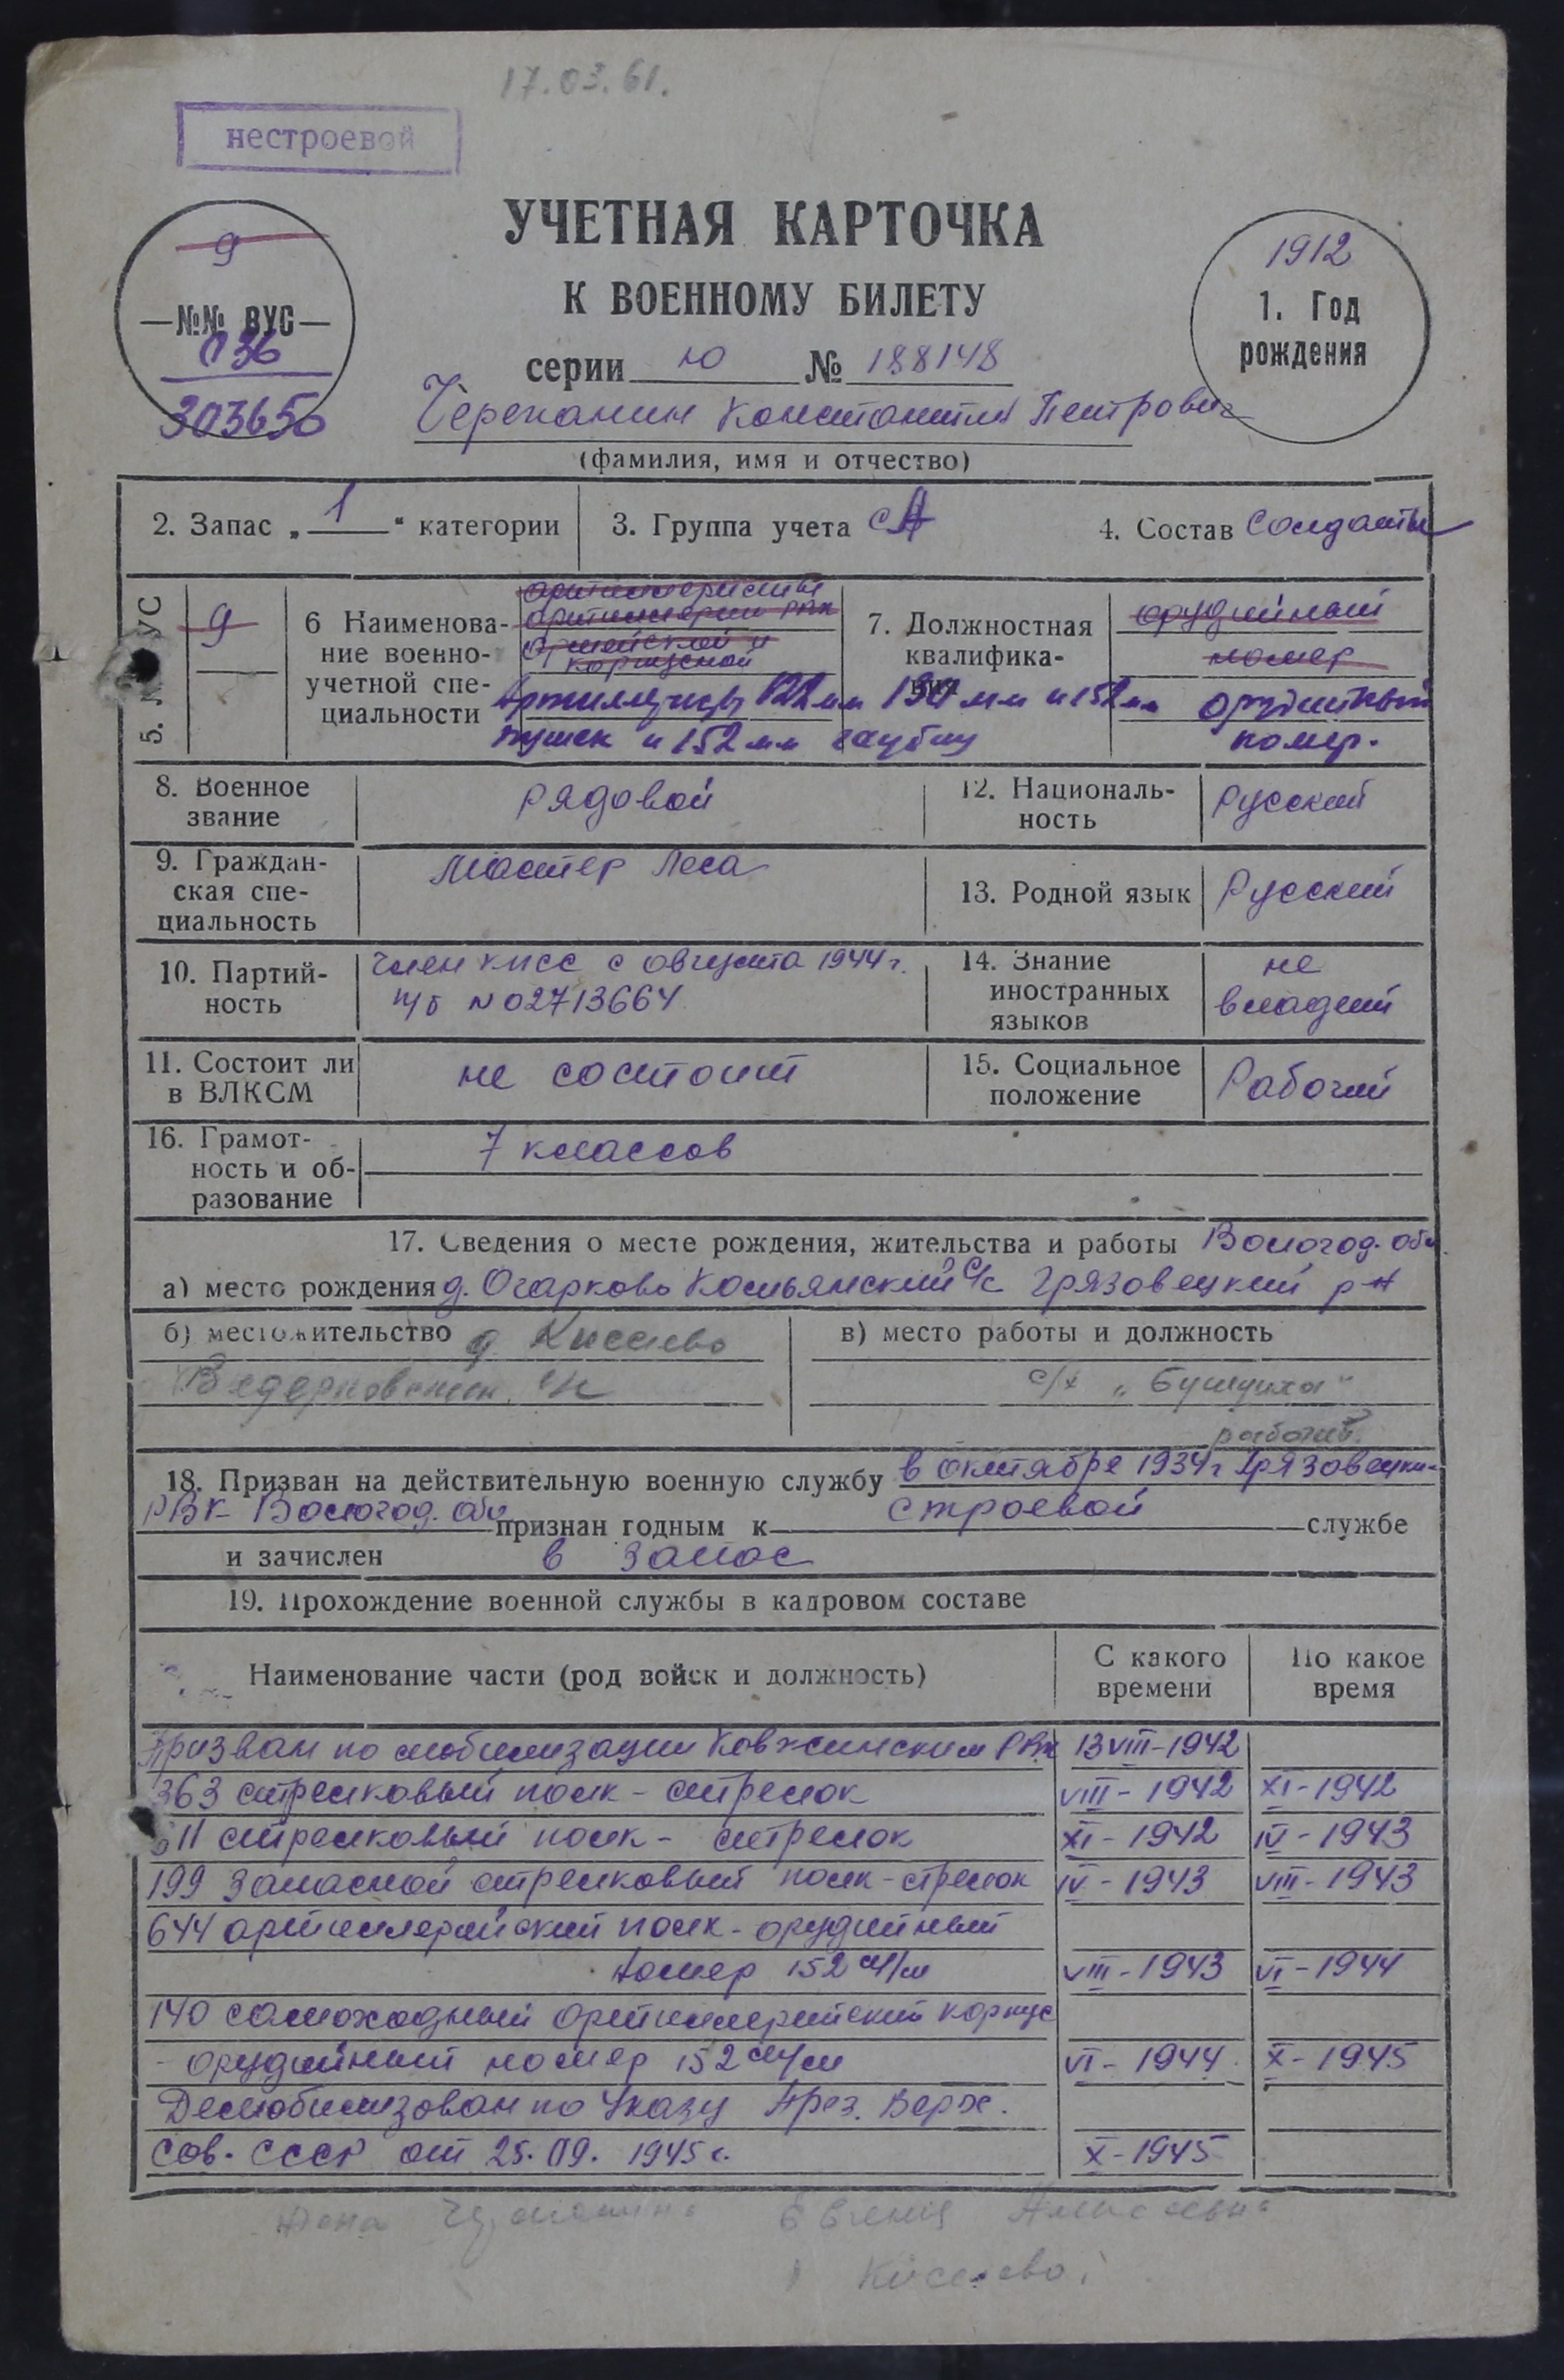 17.03.61.
нестроевой
УЧЕТНАЯ КАРТОЧКА
К ВОЕННОМУ БИЛЕТУ
серии ю № 188148
9
—№№ ВУС—
036
303650
1912
1. Год
рождения
Черепанин Константин Петрович
(фамилия, имя и отчество)
2. Запас „ 1 “ категории
3. Группа учета СА
4. Состав Солдаты
5. УС 9
6 Наименова-
ние военно-
учетной спе-
циальности
артиллеристы
артиллерии РГК
армейской и
корпусной
Артиллеристы 122 мм 130 мм и 152 мм
пушек и 152 мм гаубиц
7. Должностная
квалифика-
ция
орудийный
номер
орудийный
номер.
8. Военное
звание
рядовой
12. Националь-
ность
Русский
9. Граждан-
ская спе-
циальность
Мастер Леса
13. Родной язык Русский
10. Партий-
ность
Член КПСС с августа 1944 г.
п/б № 02713664
14. Знание
иностранных
языков
не
владеет
11. Состоит ли
в ВЛКСМ
не состоит
15. Социальное
положение
Рабочий
16. Грамот-
ность и об-
разование
7 классов
17. Сведения о месте рождения, жительства и работы Вологод. обл
а) место рождения д. Огарково Косьянский с/с Грязовецкий р-н
б) местожительство д Киселево
Ведерковский с/с
в) место работы и должность
с/х „Бушуиха“
рабочий.
18. Призван на действительную военную службу в октябре 1934 г Грязовецки-
РВК Вологод. обл признан годным к строевой службе
и зачислен в запас
19. Прохождение военной службы в кадровом составе
Наименование части (род войск и должность) С какого времени По какое время
Призван по мобилизации Ковжинским РВК 13 VIII-1942
363 стрелковый полк - стрелок VIII - 1942 XI - 1942
611 стрелковый полк - стрелок XI - 1942 IV - 1943
199 Запасной стрелковый полк - стрелок IV - 1943 VIII - 1943
644 артиллерийский полк - орудийный
номер 152 м/м VIII - 1943 VI - 1944
140 самоходный артиллерийский корпус
- орудийный номер 152 м/м VI - 1944 X - 1945
Демобилизован по Указу През. Верх.
Сов. СССР от 25.09. 1945 г. X - 1945
Жена Евгения
Киселево